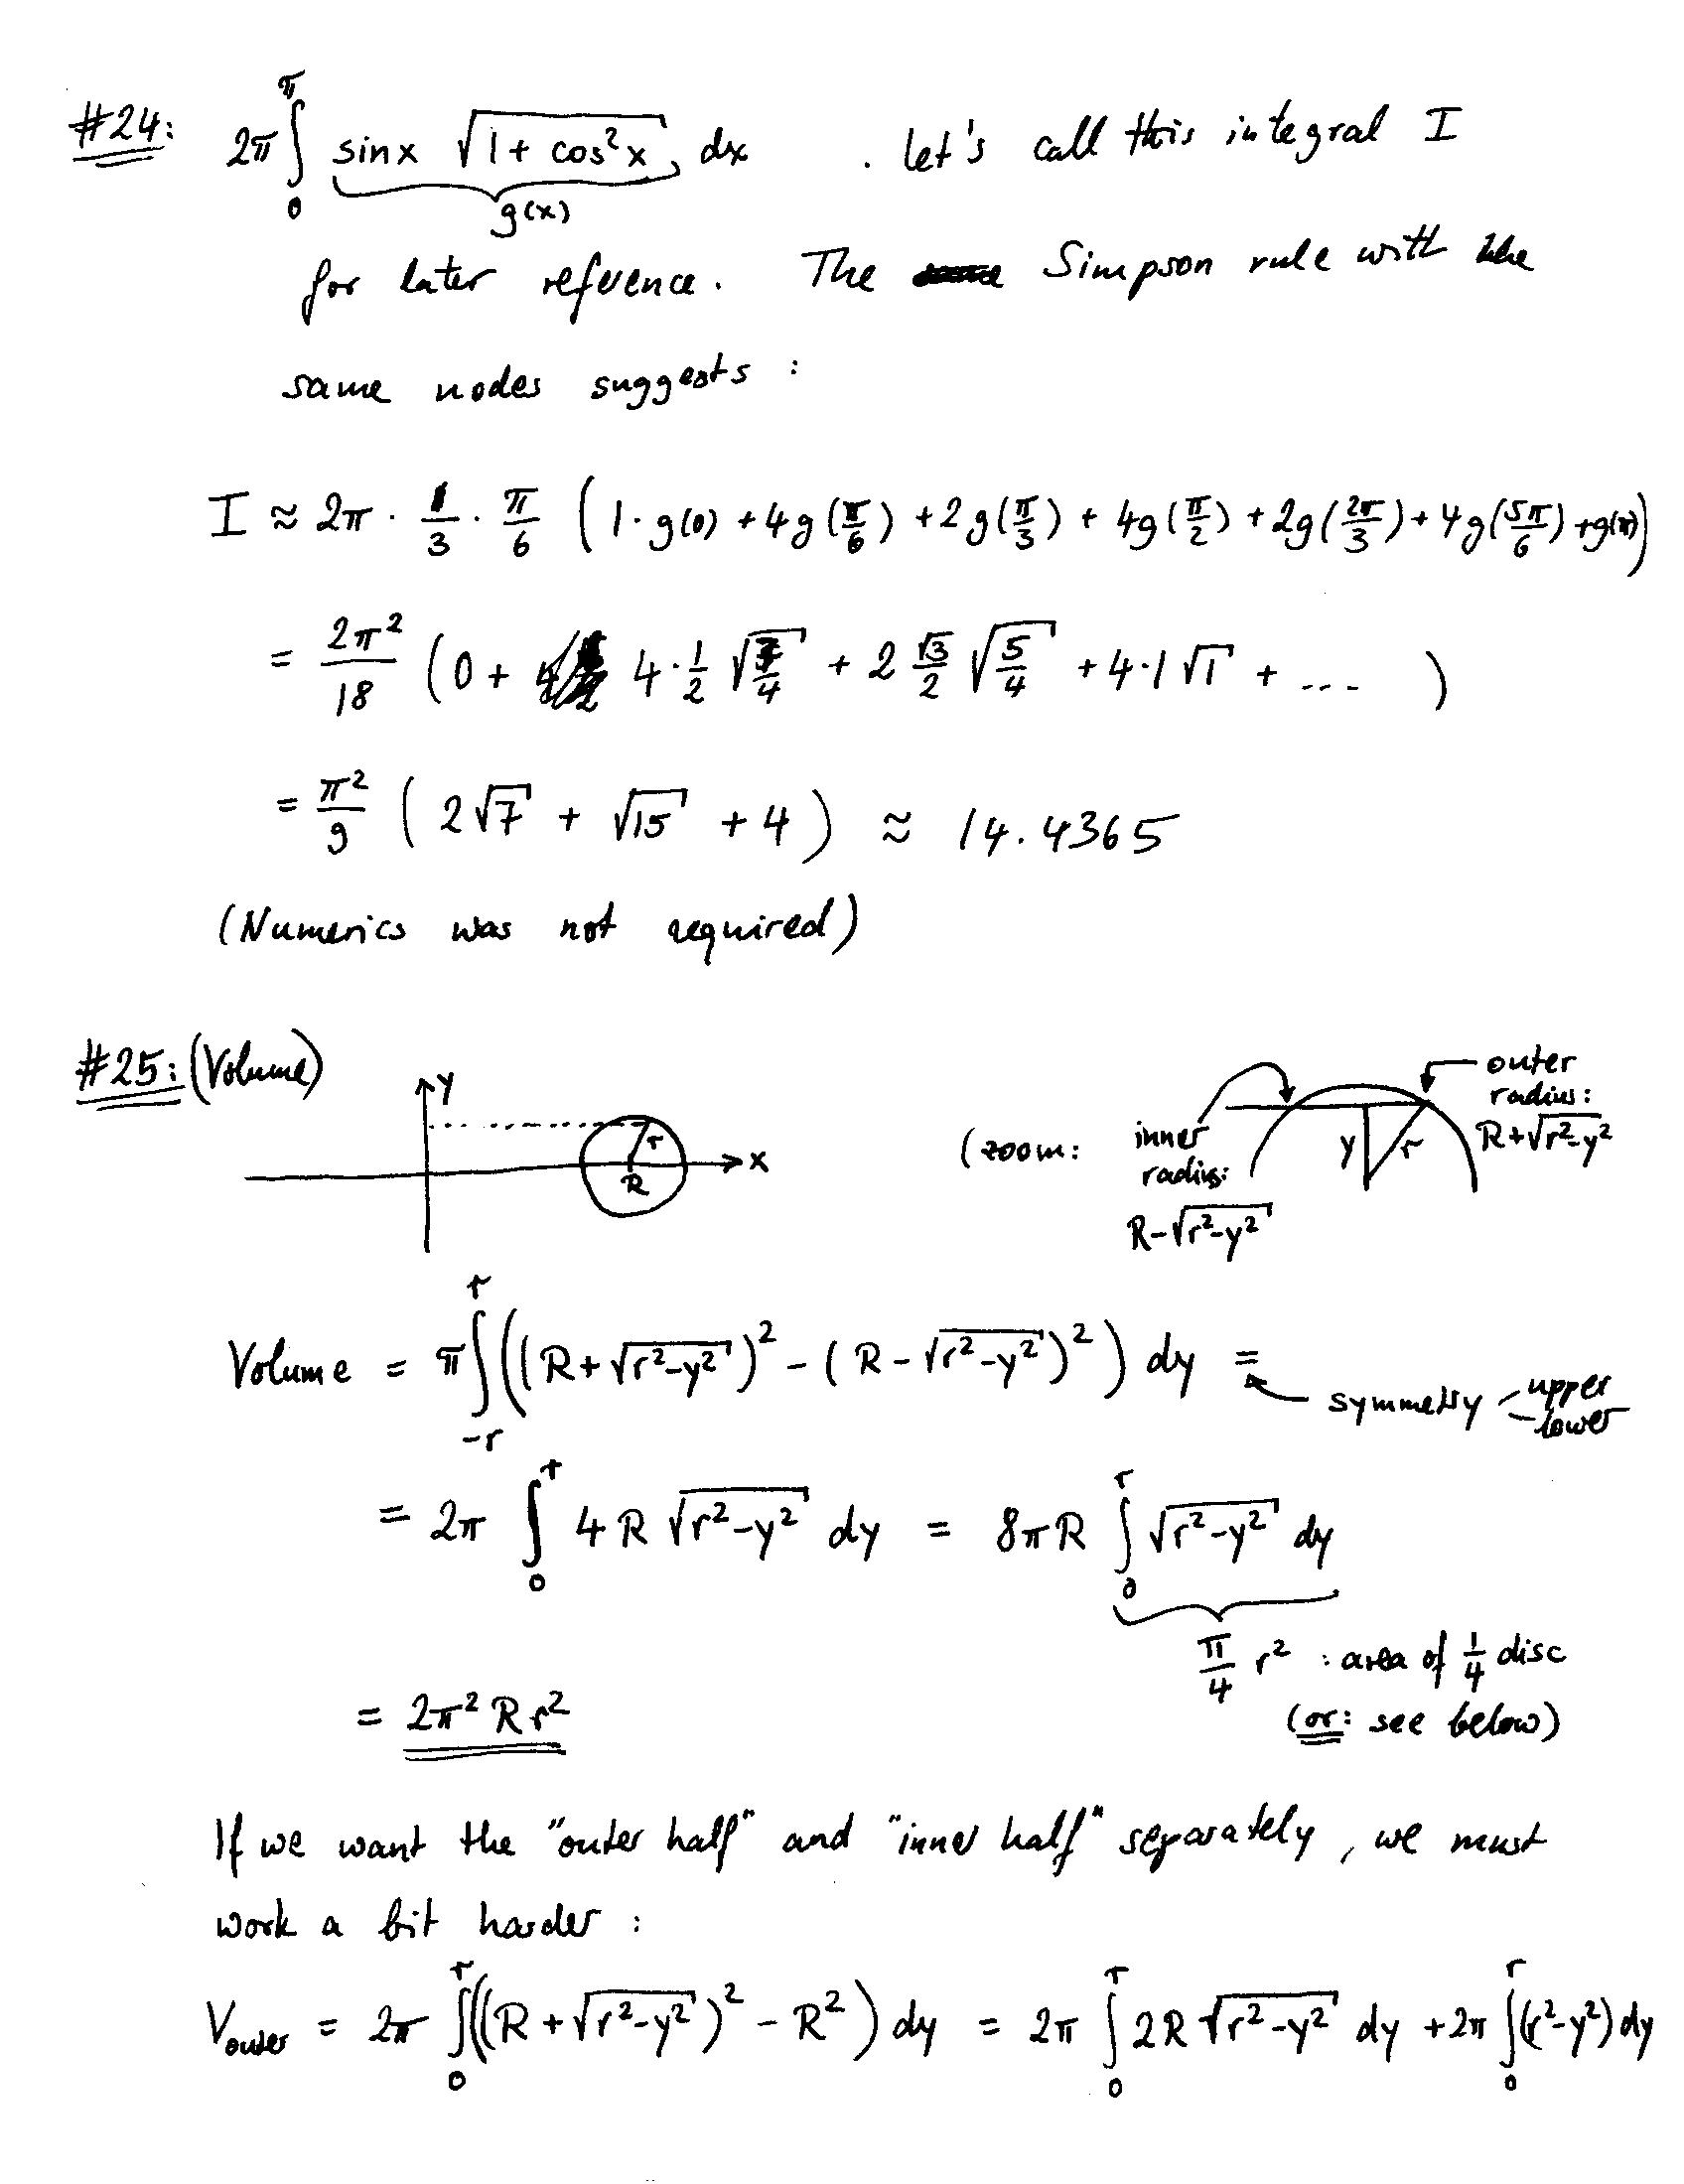 #24: 2π ∫₀^π sinx √(1 + cos²x) dx . Let's call this integral I
g(x)
for later refvence. The Simpson rule with the
same nodes suggests :
I ≈ 2π · 1/3 · π/6 ( 1·g(0) + 4g(π/6) + 2g(π/3) + 4g(π/2) + 2g(2π/3) + 4g(5π/6) + g(π))
= 2π²/18 (0 + 4·1/2 √(7/4) + 2 √3/2 √(5/4) + 4·1 √1 + .... )
= π²/9 ( 2√7 + √15 + 4 ) ≈ 14.4365
(Numerics was not required)
#25: (Volume)
y
r
R
x
(zoom: inner radius: R-√(r²-y²)
y
r
outer radius: R+√(r²-y²)
Volume = π ∫₋ᵣ^r ((R+√(r²-y²))² - (R-√(r²-y²))²) dy =
symmetry upper - lower
= 2π ∫₀^r 4R √(r²-y²) dy = 8πR ∫₀^r √(r²-y²) dy
π/4 r² : area of 1/4 disc
(or: see below)
= 2π² R r²
If we want the "outer half" and "inner half" separately, we must
work a bit harder :
V_outer = 2π ∫₀^r ((R+√(r²-y²))² - R²) dy = 2π ∫₀^r 2R √(r²-y²) dy + 2π ∫₀^r (r²-y²) dy